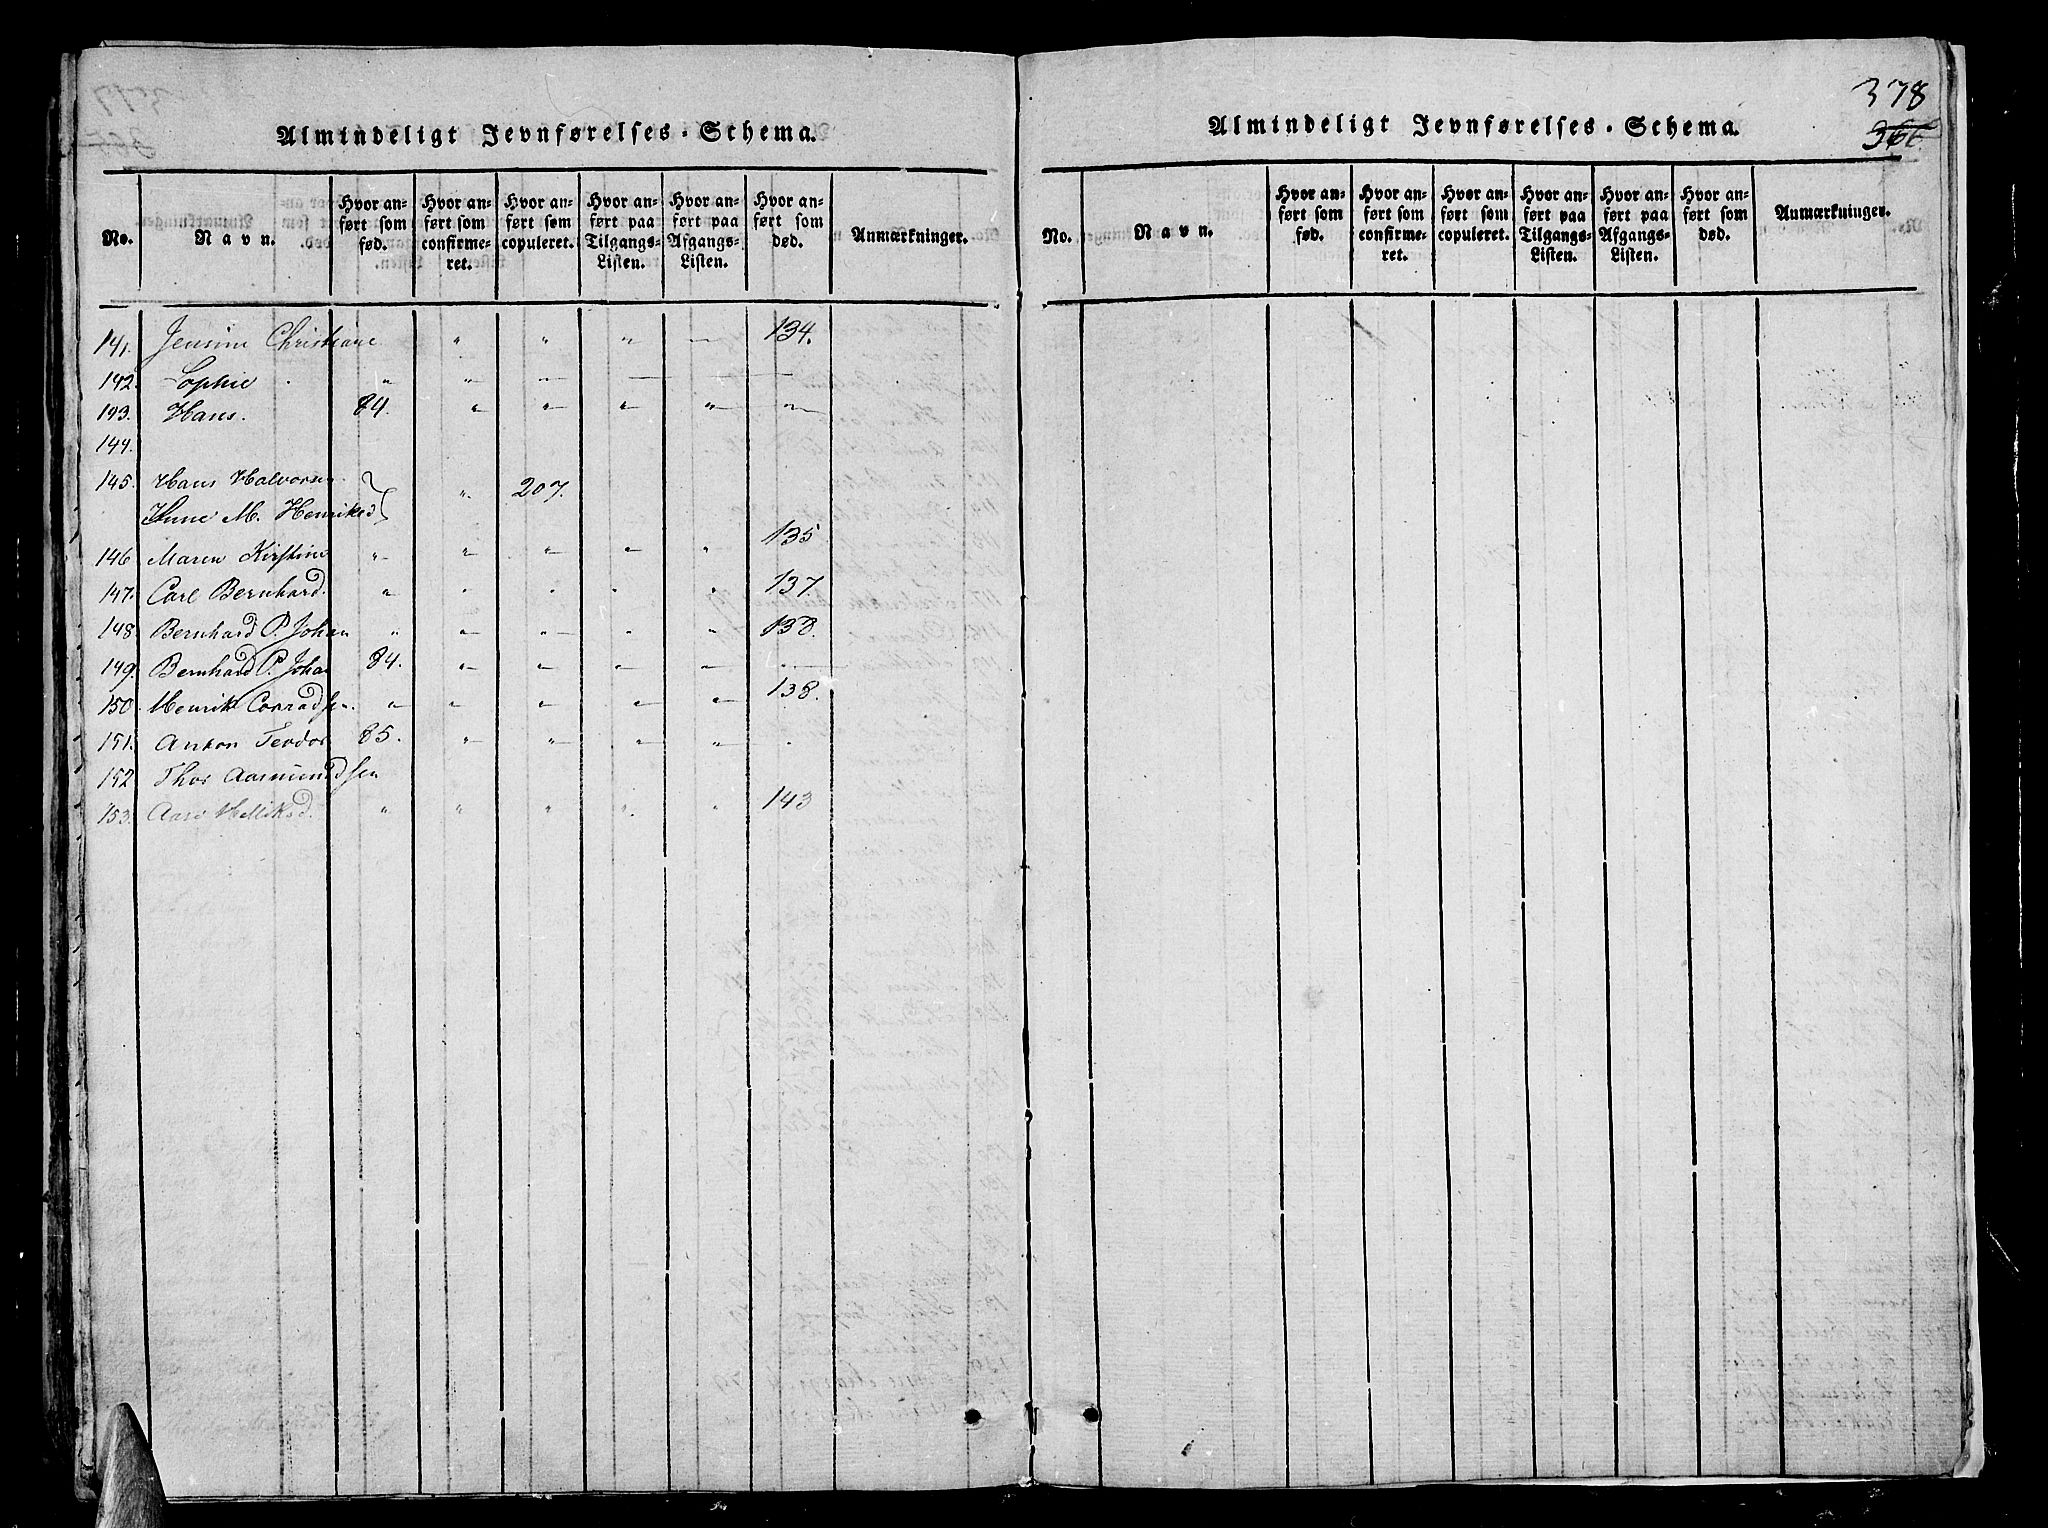 Almindeligt Jevnførelses-Schema.
No. Navn. Hvor anført som fød. Hvor anført som confirmeret. Hvor anført som copuleret. Hvor anført paa Tilgangs-Listen. Hvor anført paa Afgangs-Listen. Hvor anført som død. Anmærkninger.
141. Jensine Christiane " " " — 134.
142. Sophie " " — — — —
193. Hans. 84. " " " " —
144.
145. Hans Halvorsen
Anne M. Henriksd } " 207.
146 Maren Kirstine " " " " " 135
147. Carl Bernhard " " " " " 137.
148. Bernhard P. Johan " " " " " 138.
149. Bernhard P. Johan 84. " " " " —
150. Henrik Conradsen. " " " " " 138.
151. Anton Teodor 85. " " " " "
152 Thor Aasmundsen
153. Aase Helliksd. " " " " " 143
378
366.
Almindeligt Jevnførelses-Schema.
No. Navn. Hvor anført som fød. Hvor anført som confirmeret. Hvor anført som copuleret. Hvor anført paa Tilgangs-Listen. Hvor anført paa Afgangs-Listen. Hvor anført som død. Anmærkninger.